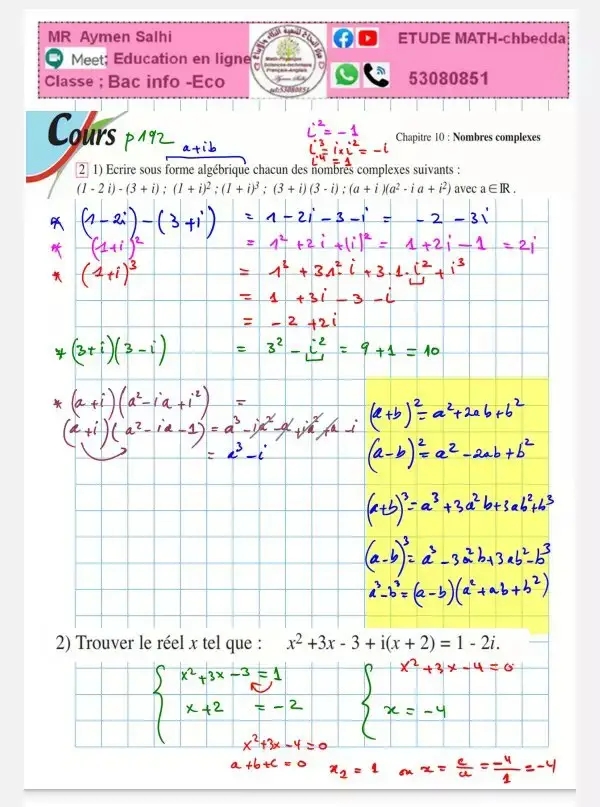 MR Aymen Salhi
Meet; Education en ligne
Classe ; Bac info -Eco
ETUDE MATH-chbedda
53080851
Cours p 192
i² = -1
i³ = i×i² = -i
i⁴ = 1
Chapitre 10 : Nombres complexes
a+ib
2 1) Ecrire sous forme algébrique chacun des nombres complexes suivants :
(1 - 2 i) - (3 + i) ; (1 + i)² ; (1 + i)³ ; (3 + i) (3 - i) ; (a + i )(a² - i a + i²) avec a ∈ IR .
* (1-2i) - (3+i) = 1-2i-3-i = -2-3i
* (1+i)² = 1² + 2i + (i)² = 1+2i-1 = 2i
* (1+i)³ = 1³ + 3 1² i + 3.1.i² + i³
= 1 + 3i - 3 - i
= -2 + 2i
* (3+i)(3-i) = 3² - i² = 9+1 = 10
* (a+i)(a²-ia+i²) =
(a+i)(a²-ia-1) = a³ - ia² - a + ia² + a - i
= a³ - i
(a+b)² = a²+2ab+b²
(a-b)² = a²-2ab+b²
(a+b)³ = a³+3a²b+3ab²+b³
(a-b)³ = a³-3a²b+3ab²-b³
a³-b³ = (a-b)(a²+ab+b²)
2) Trouver le réel x tel que : x² +3x - 3 + i(x + 2) = 1 - 2i.
x²+3x-3 = 1
x+2 = -2
x²+3x-4 = 0
x = -4
x²+3x-4=0
a+b+c=0
x₂ = 1 ou x = c/a = -4/1 = -4